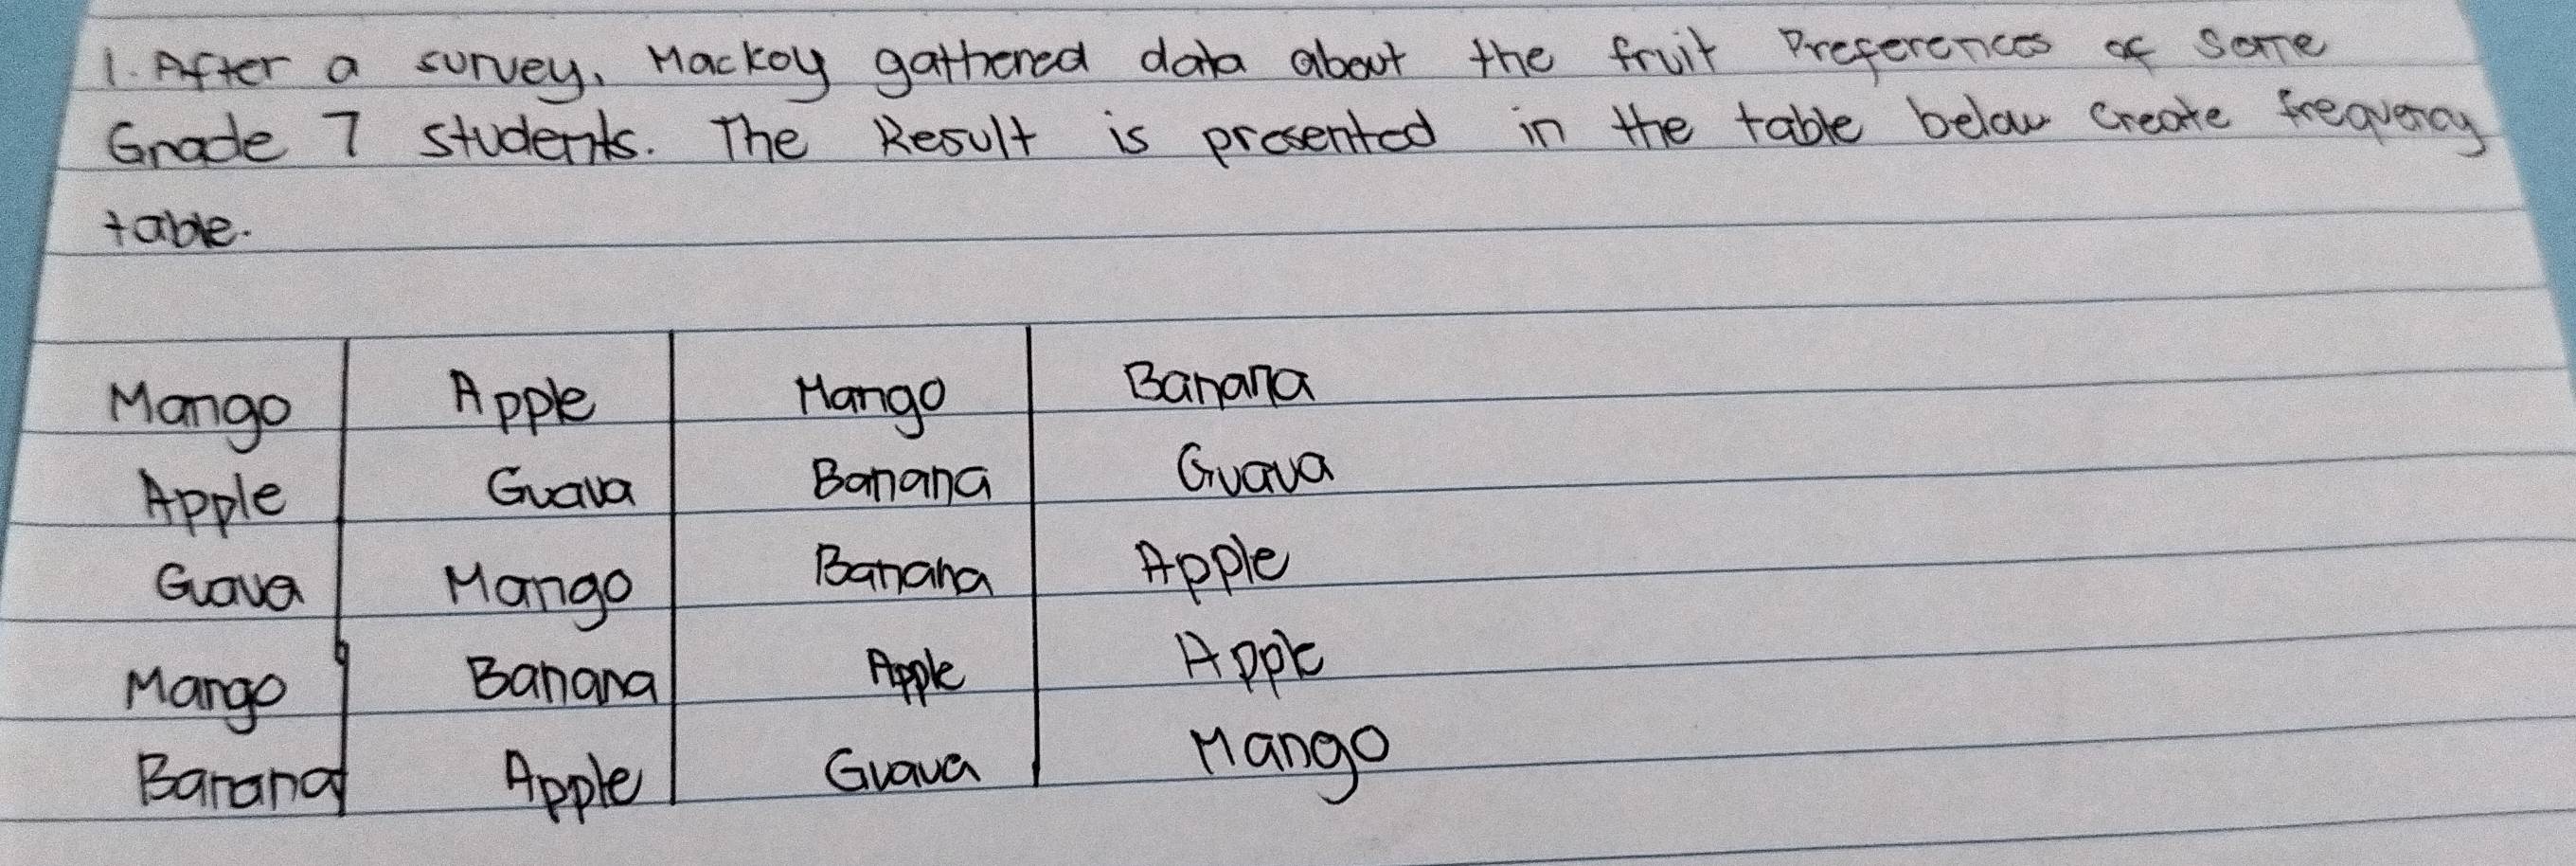 1. After a survey, Mackoy gathered data about the fruit Preferences of some
Grade 7 students. The Result is presented in the table below create frequency
table.
Mango Apple Mango Banana
Apple Guava Banana Guava
Guava Mango Banana Apple
Mango Banana Apple Apple
Banana Apple Guava Mango